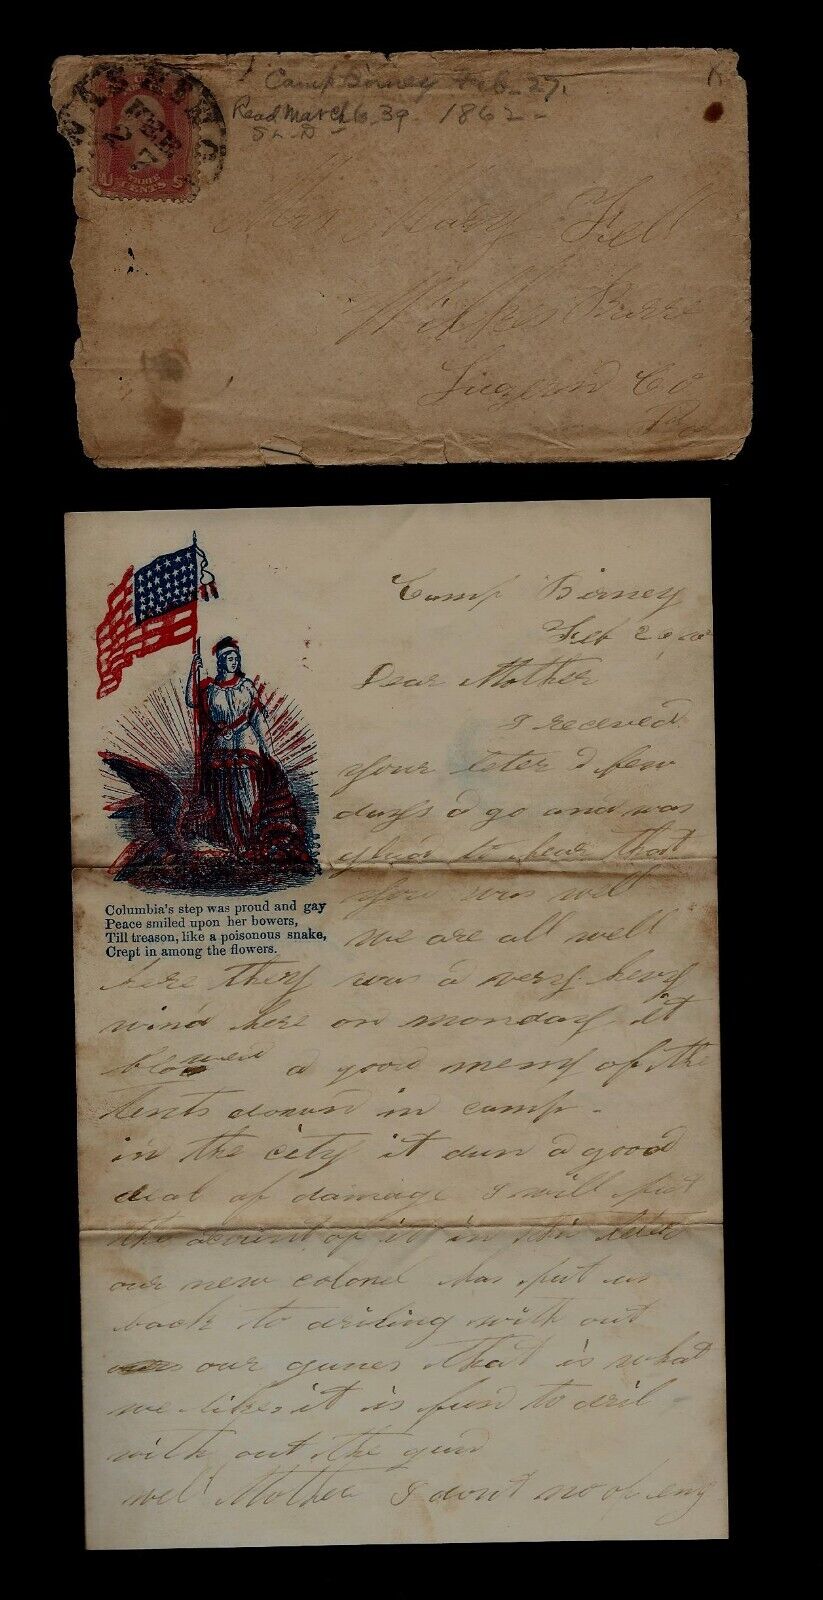 Camp Birney Feb. 27.
Read March 6. 39 1862 -
FEB
27
THREE
CENTS
U S
Mrs Mary Fell
Wilkes Barre
Luzern Co
Pa
Camp Birney
Feb 26
Dear Mother
I receved
your leter a few
days a go and was
glad to hear that
you was well
we are all well
Columbia's step was proud and gay
Peace smiled upon her bowers,
Till treason, like a poisonous snake,
Crept in among the flowers.
here they was a very hevy
wind here on monday it
blowed a good meny of the
tents down in camp -
in the city it dun a good
deal of damage I will put
the acount of it in this leter
our new colonel has put us
back to driling with out
our gunes that is what
we like it is fun to dril -
with out the gun
well Mother I dont no of eny